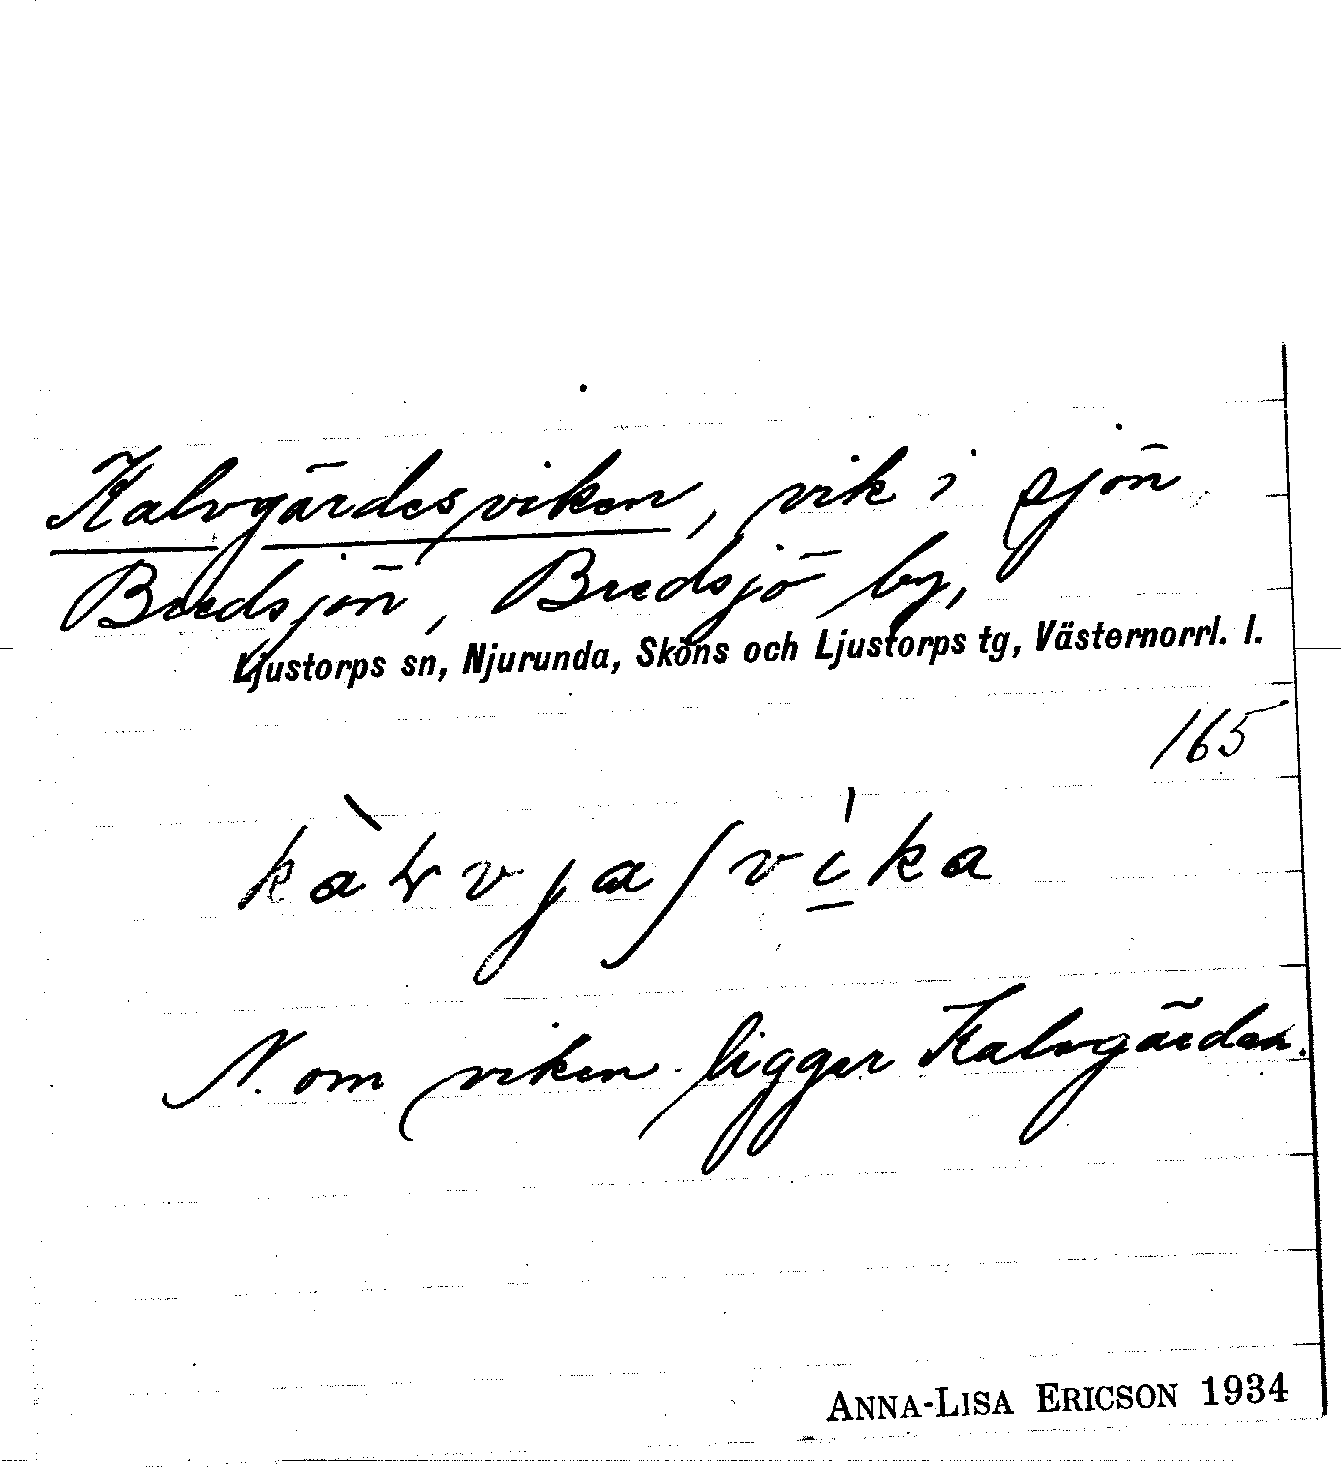 Kalvgärdesviken, vik i sjön
Bredsjön, Bredsjö by,
Ljustorps sn, Njurunda, Sköns och Ljustorps tg, Västernorrl. l.
165
N. om viken ligger Kalvgärden.
ANNA-LISA ERICSON 1934